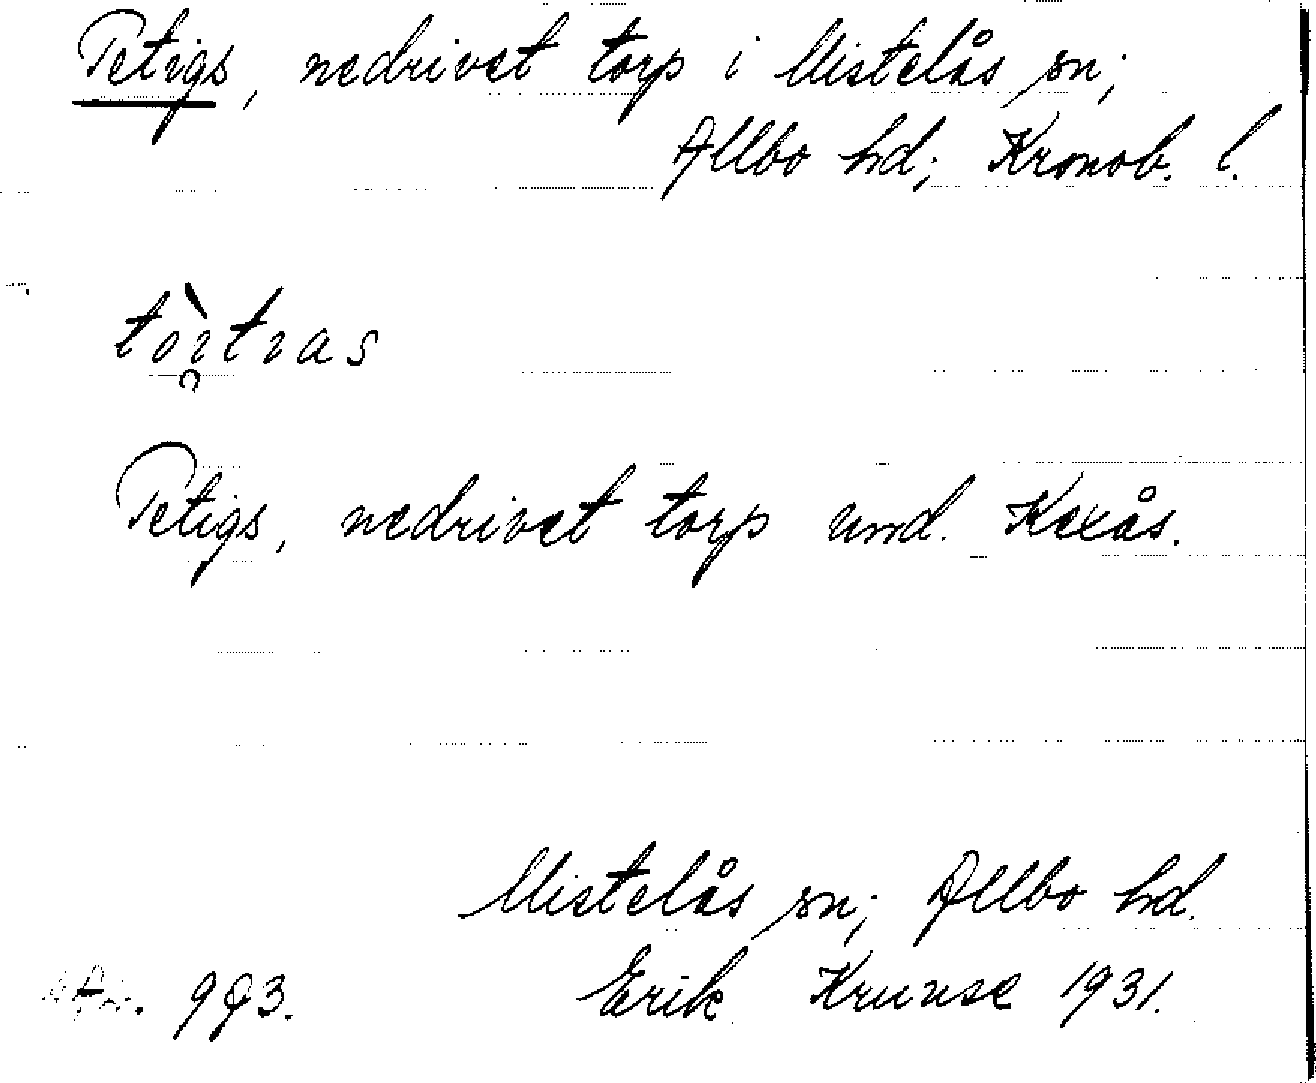 Petigs, nedrivet torp i Mistelås sn;
Allbo hd; Kronob. l.
Petigs, nedrivet torp und. Kexås.
Mistelås sn; Allbo hd.
993. Erik Krunse 1931.